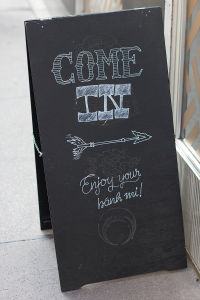 COME
IN
Enjoy your
bánh mì!